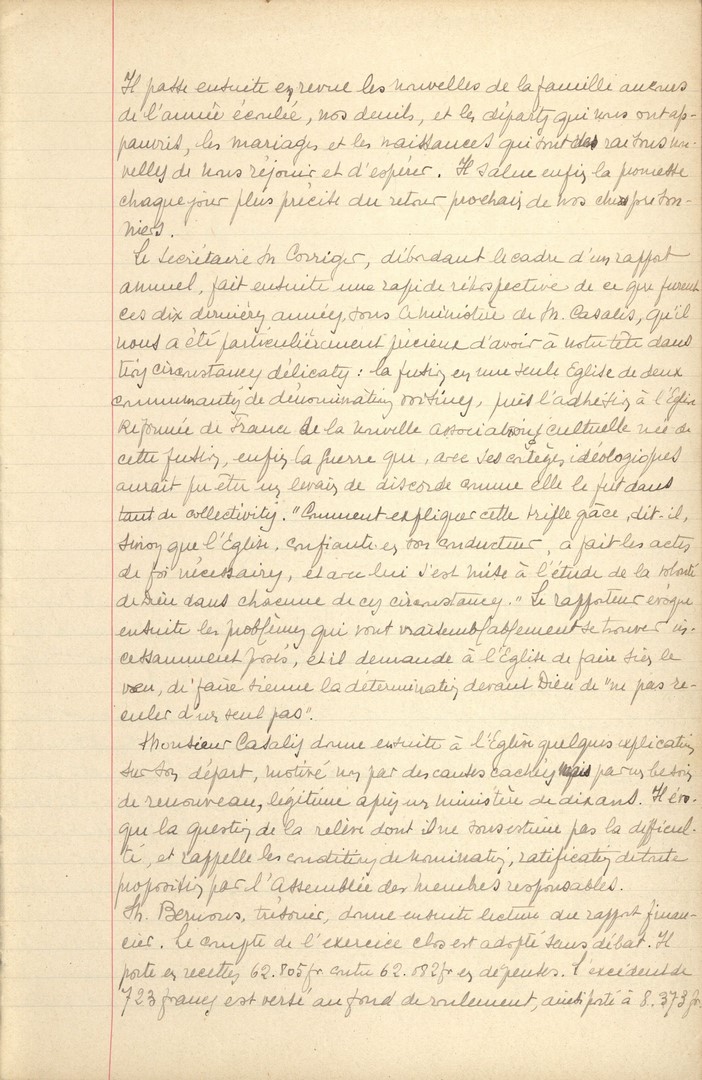 Il passe ensuite en revue les nouvelles de la famille au cours
de l'année écoulée, nos deuils, et les départs qui nous ont ap-
pauvris, les mariages et les naissances qui sont des raisons nou-
velles de nous réjouir et d'espérer. Il salue enfin la promesse
chaque jour plus précise du retour prochain de nos chers prison-
niers.
Le secrétaire M. Corriger, débordant le cadre d'un rapport
annuel, fait ensuite une rapide rétrospective de ce que furent
ces dix dernières années, sous le ministère de M. Casalis, qu'il
nous a été particulièrement précieux d'avoir à notre tête dans
trois circonstances délicates : la fusion en une seule Eglise de deux
communautés de dénominations voisines, puis l'adhésion à l'Eglise
Réformée de France de la nouvelle association cultuelle née de
cette fusion, enfin la Guerre qui, avec ses cortèges idéologiques
aurait pu être un levain de discorde comme elle le fut dans
tant de collectivités. "Comment expliquer cette triple grâce, dit-il,
sinon que l'Eglise, confiante en son conducteur, a fait les actes
de foi nécessaires, et avec lui s'est mise à l'étude de la volonté
de Dieu dans chacune de ces circonstances." Le rapporteur évoque
ensuite les problèmes qui vont vraisemblablement se trouver in-
cessamment posés, et il demande à l'Eglise de faire sien le
vœu, de faire sienne la détermination devant Dieu de "ne pas re-
culer d'un seul pas".
Monsieur Casalis donne ensuite à l'Eglise quelques explications
sur son départ, motivé non par des causes cachées mais par un besoin
de renouveau, légitime après un ministère de dix ans. Il évo-
que la question de la relève dont il ne sous estime pas la difficul-
té, et rappelle les conditions de nomination, ratification de toute
proposition par l'Assemblée des membres responsables.
M. Bernous, trésorier, donne ensuite lecture du rapport finan-
cier. Le compte de l'exercice clos est adopté sans débat. Il
porte en recettes 62.805 fr contre 62.082 fr en dépenses. L'excédent de
723 francs est versé au fond de roulement, ainsi porté à 8.373 fr.